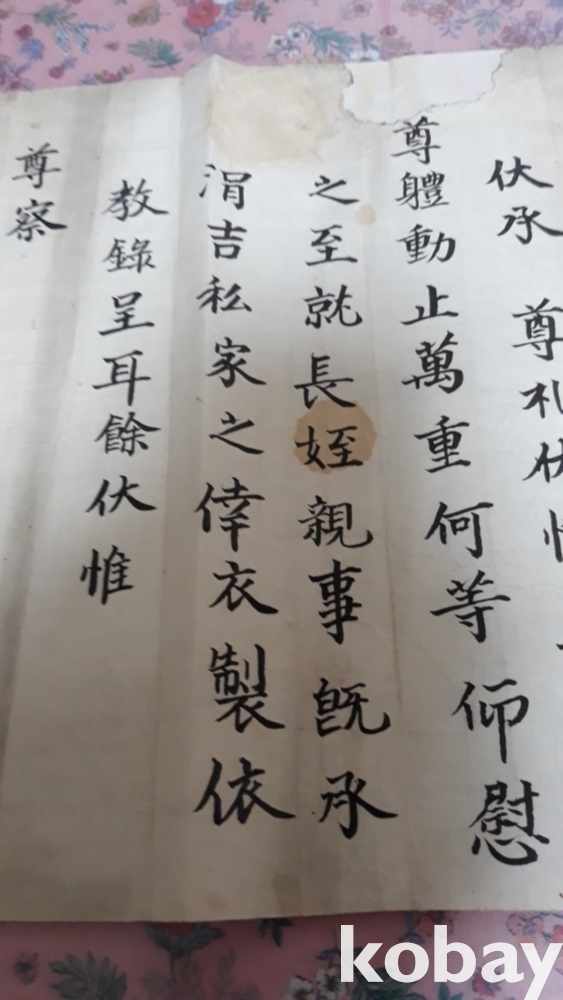 伏承
尊札伏惟
尊體動止萬重何等仰慰
之至就長姪親事旣承
涓吉私家之倖衣製依
教錄呈耳餘伏惟
尊察
kobay